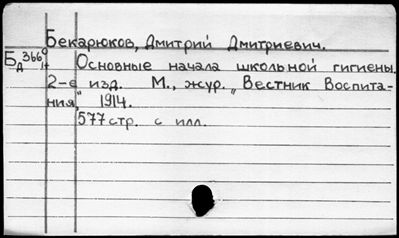 Бекарюков, Дмитрий Дмитриевич.
Основные начала школьной гигиены.
2-е изд. М., жур. „Вестник Воспита-
ния," 1914.
577 стр. с илл.